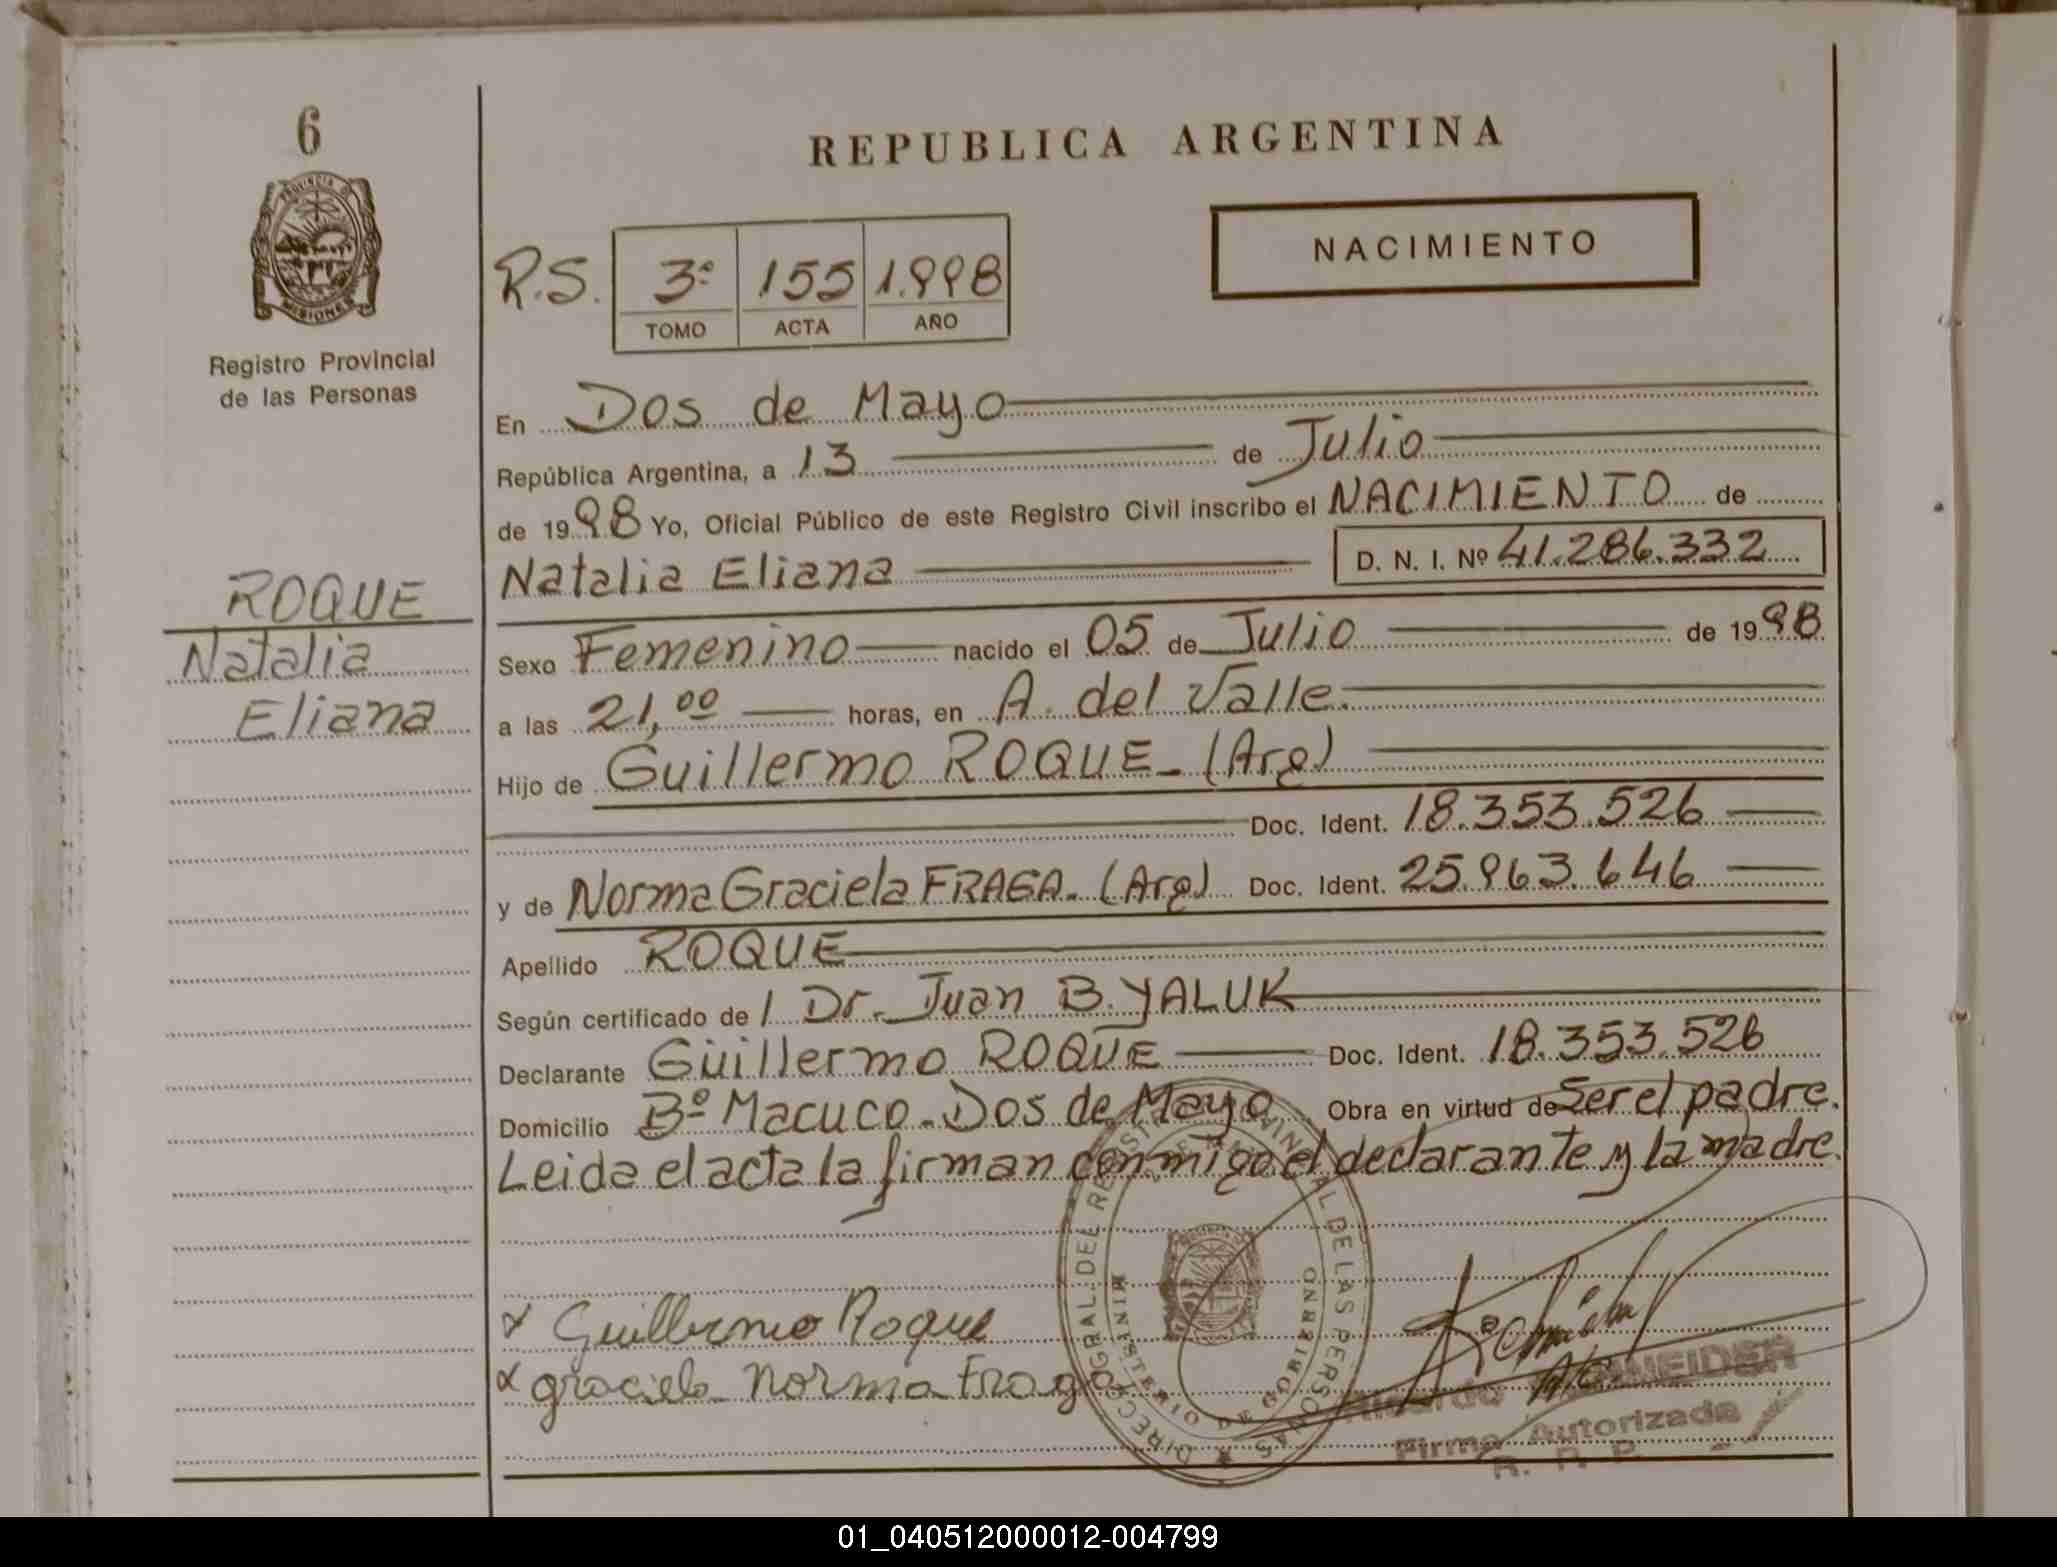 6
PROVINCIA DE
MISIONES
Registro Provincial
de las Personas
ROQUE
Natalia
Eliana
REPUBLICA ARGENTINA
NACIMIENTO
R.S. 3º 155 1.998
TOMO ACTA AÑO
En Dos de Mayo
República Argentina, a 13 de Julio
de 1998 Yo, Oficial Público de este Registro Civil inscribo el NACIMIENTO de
Natalia Eliana D. N. I. Nº 41.286.332
Sexo Femenino nacido el 05 de Julio de 1998
a las 21,00 horas, en A. del Valle.
Hijo de Guillermo ROQUE - (Arg)
Doc. Ident. 18.353.526
y de Norma Graciela FRAGA. (Arg) Doc. Ident. 25.963.646
Apellido ROQUE
Según certificado de / Dr. Juan B. YALUK
Declarante Guillermo ROQUE Doc. Ident. 18.353.526
Domicilio Bº Macuco - Dos de Mayo Obra en virtud de Ser el padre.
Leida el acta la firman conmigo el declarante y la madre.
Guillermo Roque
graciela Norma Fraga
DIRECC. GRAL. DEL REGISTRO PROVINCIAL DE LAS PERSONAS
MINISTERIO DE GOBIERNO
Ricardo SCHNEIDER
Firma Autorizada
R. P. P.
01_040512000012-004799